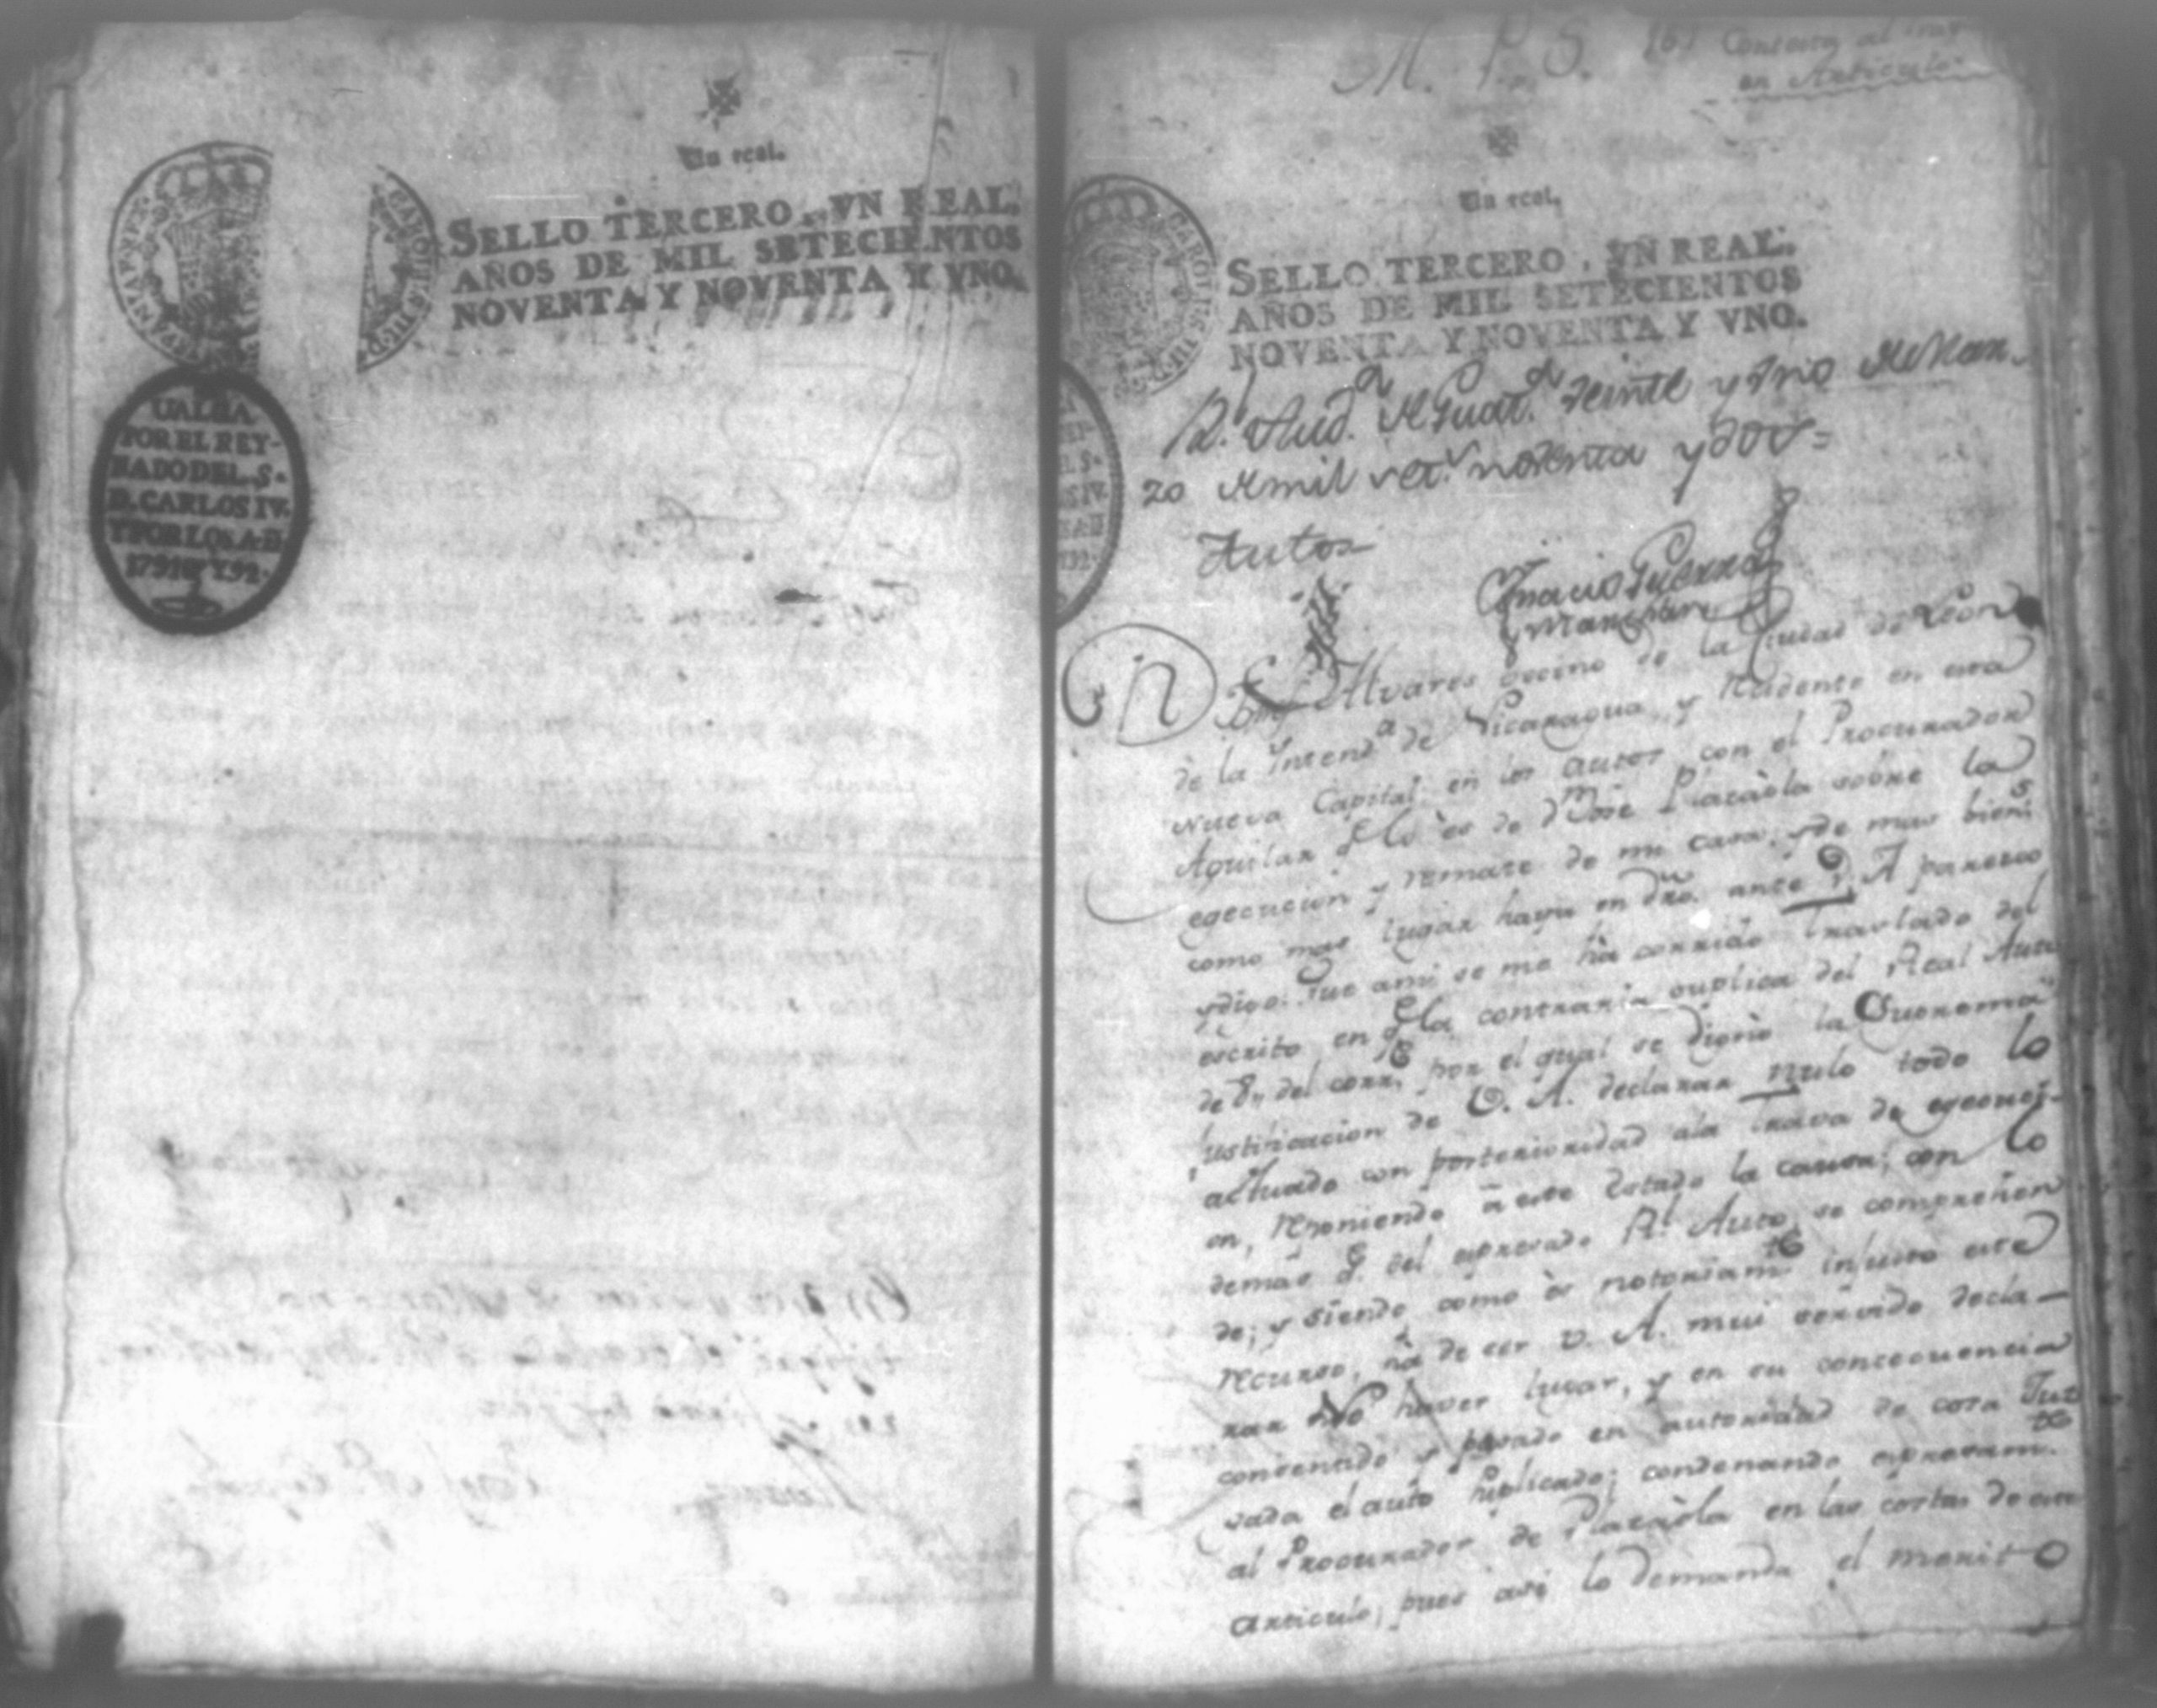 Un real.
SELLO TERCERO, VN REAL,
AÑOS DE MIL SETECIENTOS
NOVENTA Y NOVENTA Y VNO.
VALGA
POR EL REY-
NADO DEL S.
D. CARLOS IV.
Y POR LOS A. D
1791 Y 92.
M. P. S.
Contexta al tras
en Articulo
Un real.
SELLO TERCERO, VN REAL.
AÑOS DE MIL SETECIENTOS
NOVENTA Y NOVENTA Y VNO.
R.l Aud.a de Guat.a veinte y uno de Mar-
zo de mil set.s noventa y dos =
Autos
Ignacio Guerra
y Marchan
Alvares vecino de la Ciudad de Leon
de la Intend.a de Nicaragua, y recidente en esta
Nueva Capital en los autos con el Procurador
Aguilar q.e lo es de d.n José Plazaola sobre la
egecucion y remate de mi casa, y de mas bien.s
como mas lugar haya en dro. ante V. A parezco
y digo: Que ami se me ha corrido traslado del
escrito en q.e la contraria suplica del Real Auto
de 8,, del corr.te por el qual se dignó la Suprema
justificacion de V. A. declarar nulo todo lo
actuado con posterioridad ala trava de egecuci-
on, reponiendo à este Estado la causa; con lo
demás q.e del expresado R.l Auto, se comprehen
de; y siendo como és notoriam.te injusto este
recurso, há de ser V. A. mui servido decla-
rar no haver lugar, y en su consecuencia
consentido y pasado en autoridad de cosa Juz
gada el auto suplicado; condenando expresam.te
al Procurador de Plazaola en las costas de este
articulo, pues asi lo demanda el merito